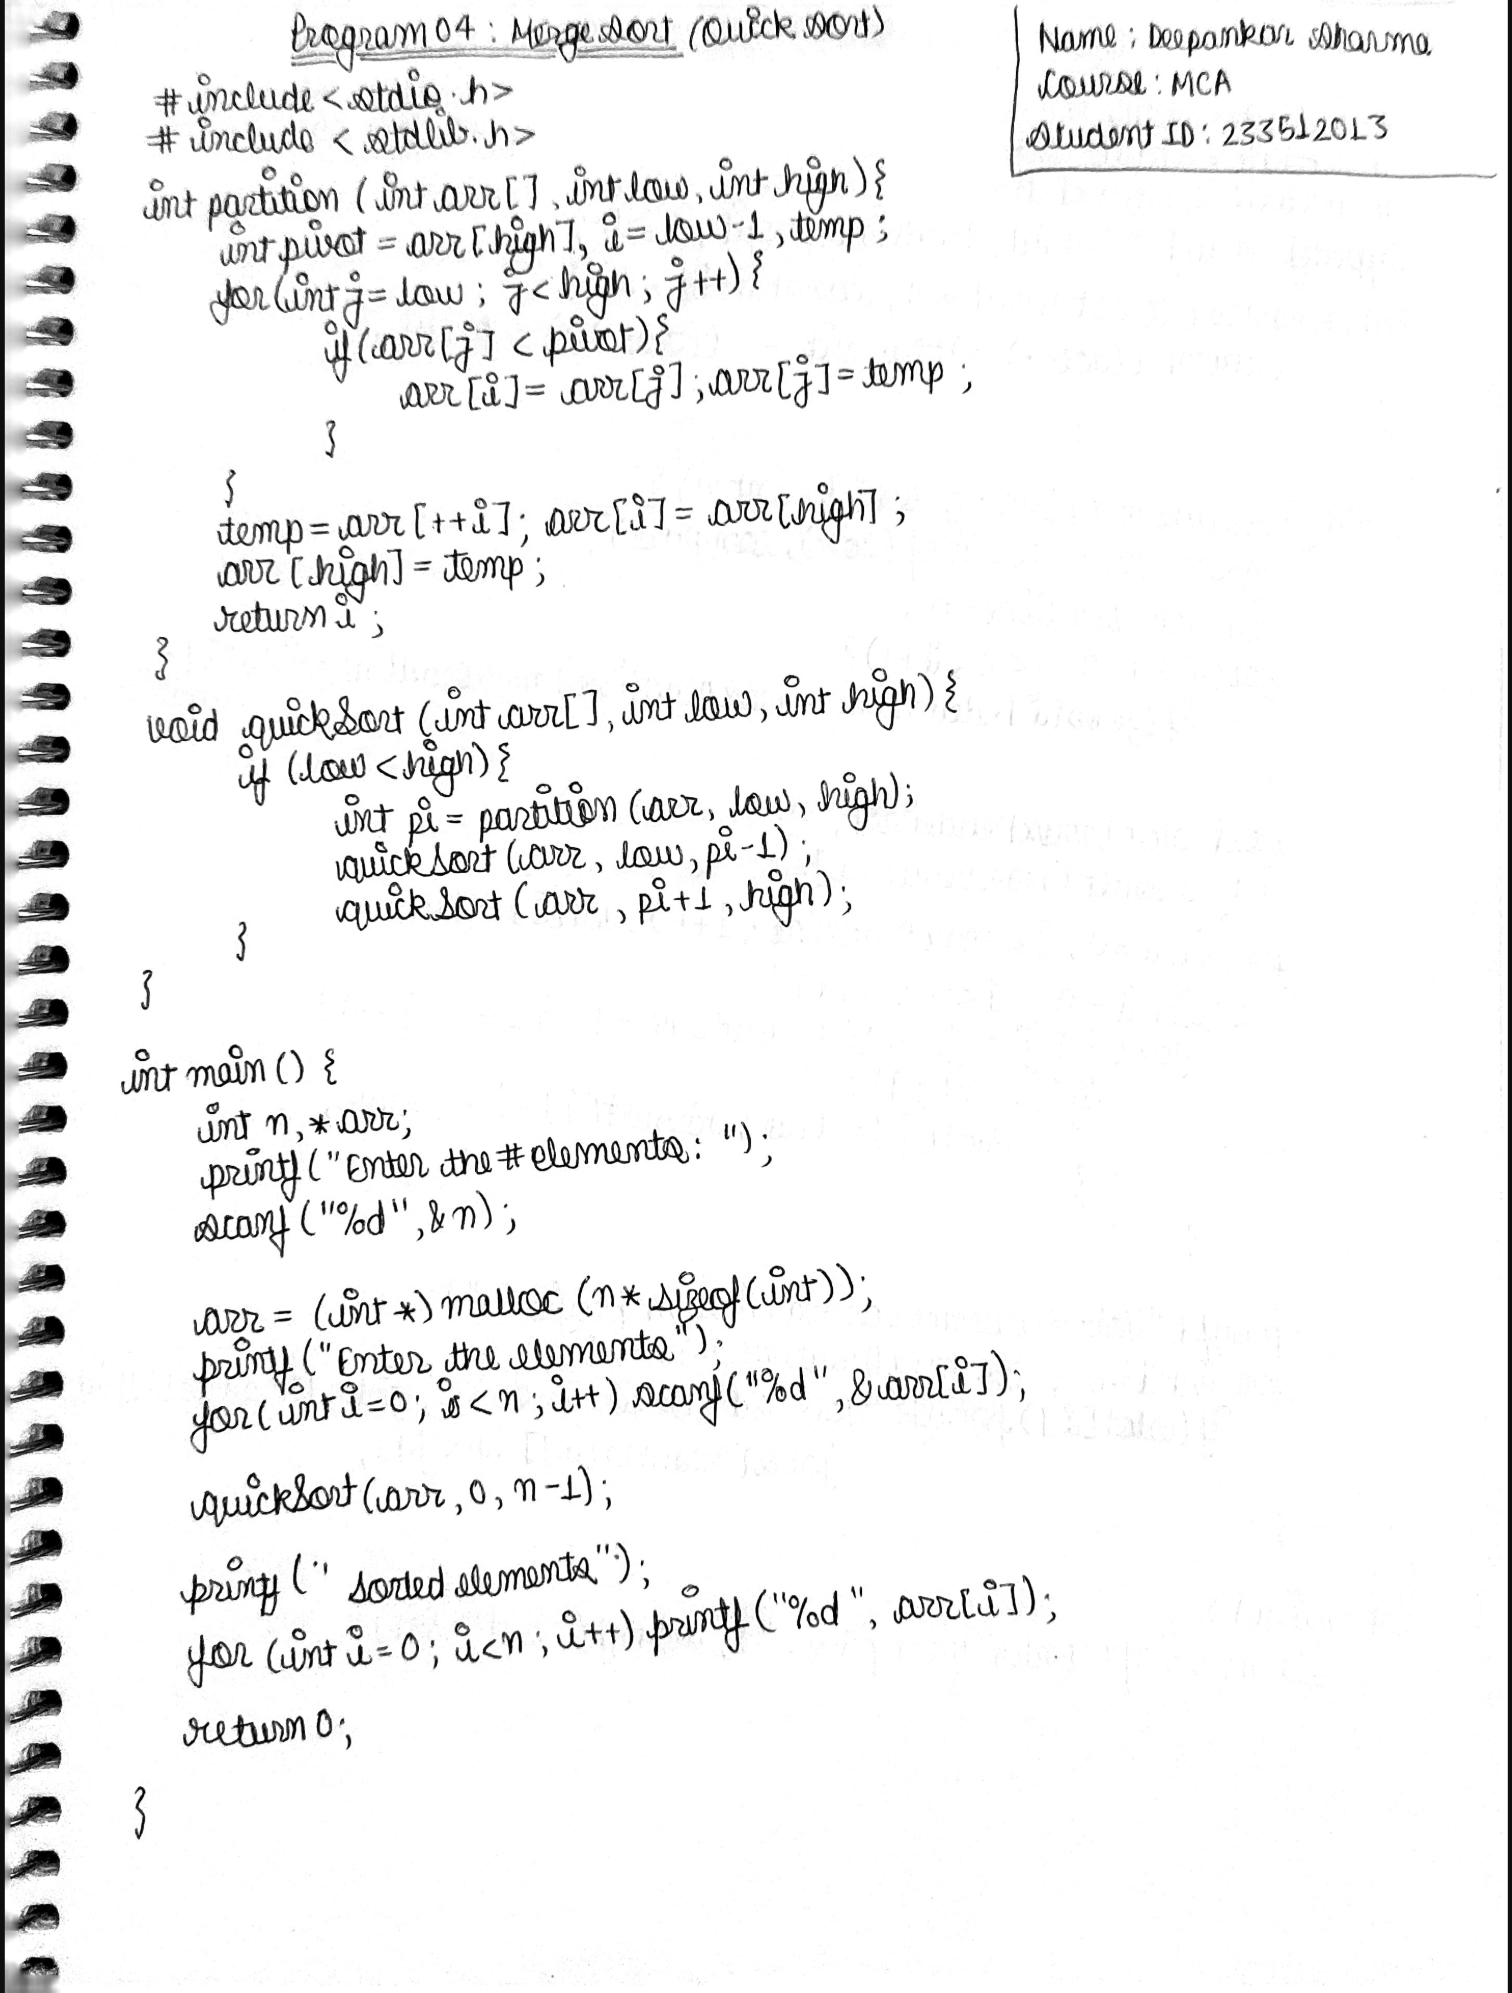 Program 04 : Merge sort (Quick sort)
Name : Deepankar Sharma
Course : MCA
Student ID : 233512013
#include <stdio.h>
#include <stdlib.h>
int partition (int arr[], int low, int high){
int pivot = arr[high], i = low-1, temp ;
for(int j = low ; j < high ; j++){
if(arr[j] < pivot){
arr[i] = arr[j] ; arr[j] = temp ;
}
}
temp = arr[++i]; arr[i] = arr[high] ;
arr[high] = temp ;
return i ;
}
void quickSort (int arr[], int low, int high){
if (low < high){
int pi = partition (arr, low, high);
quickSort (arr, low, pi-1) ;
quickSort (arr, pi+1, high);
}
}
int main() {
int n, *arr;
printf("Enter the # elements: ");
scanf("%d", &n);
arr = (int*) malloc (n* sizeof(int));
printf("Enter the elements");
for(int i=0; i<n ; i++) scanf("%d", &arr[i]);
quickSort(arr, 0, n-1);
printf(" sorted elements");
for (int i=0; i<n ; i++) printf("%d", arr[i]);
return 0;
}